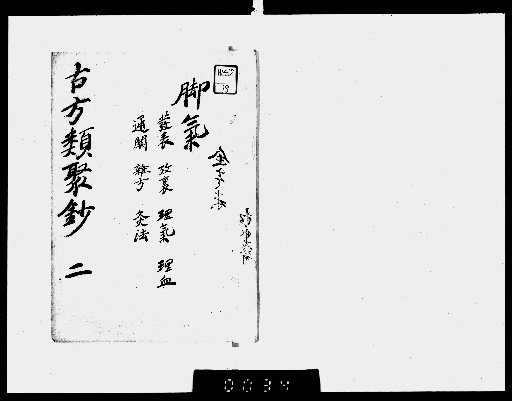 脚氣
發表 攻裏 理氣 理血
通關 雜方 灸法
古方類聚鈔 二
0034